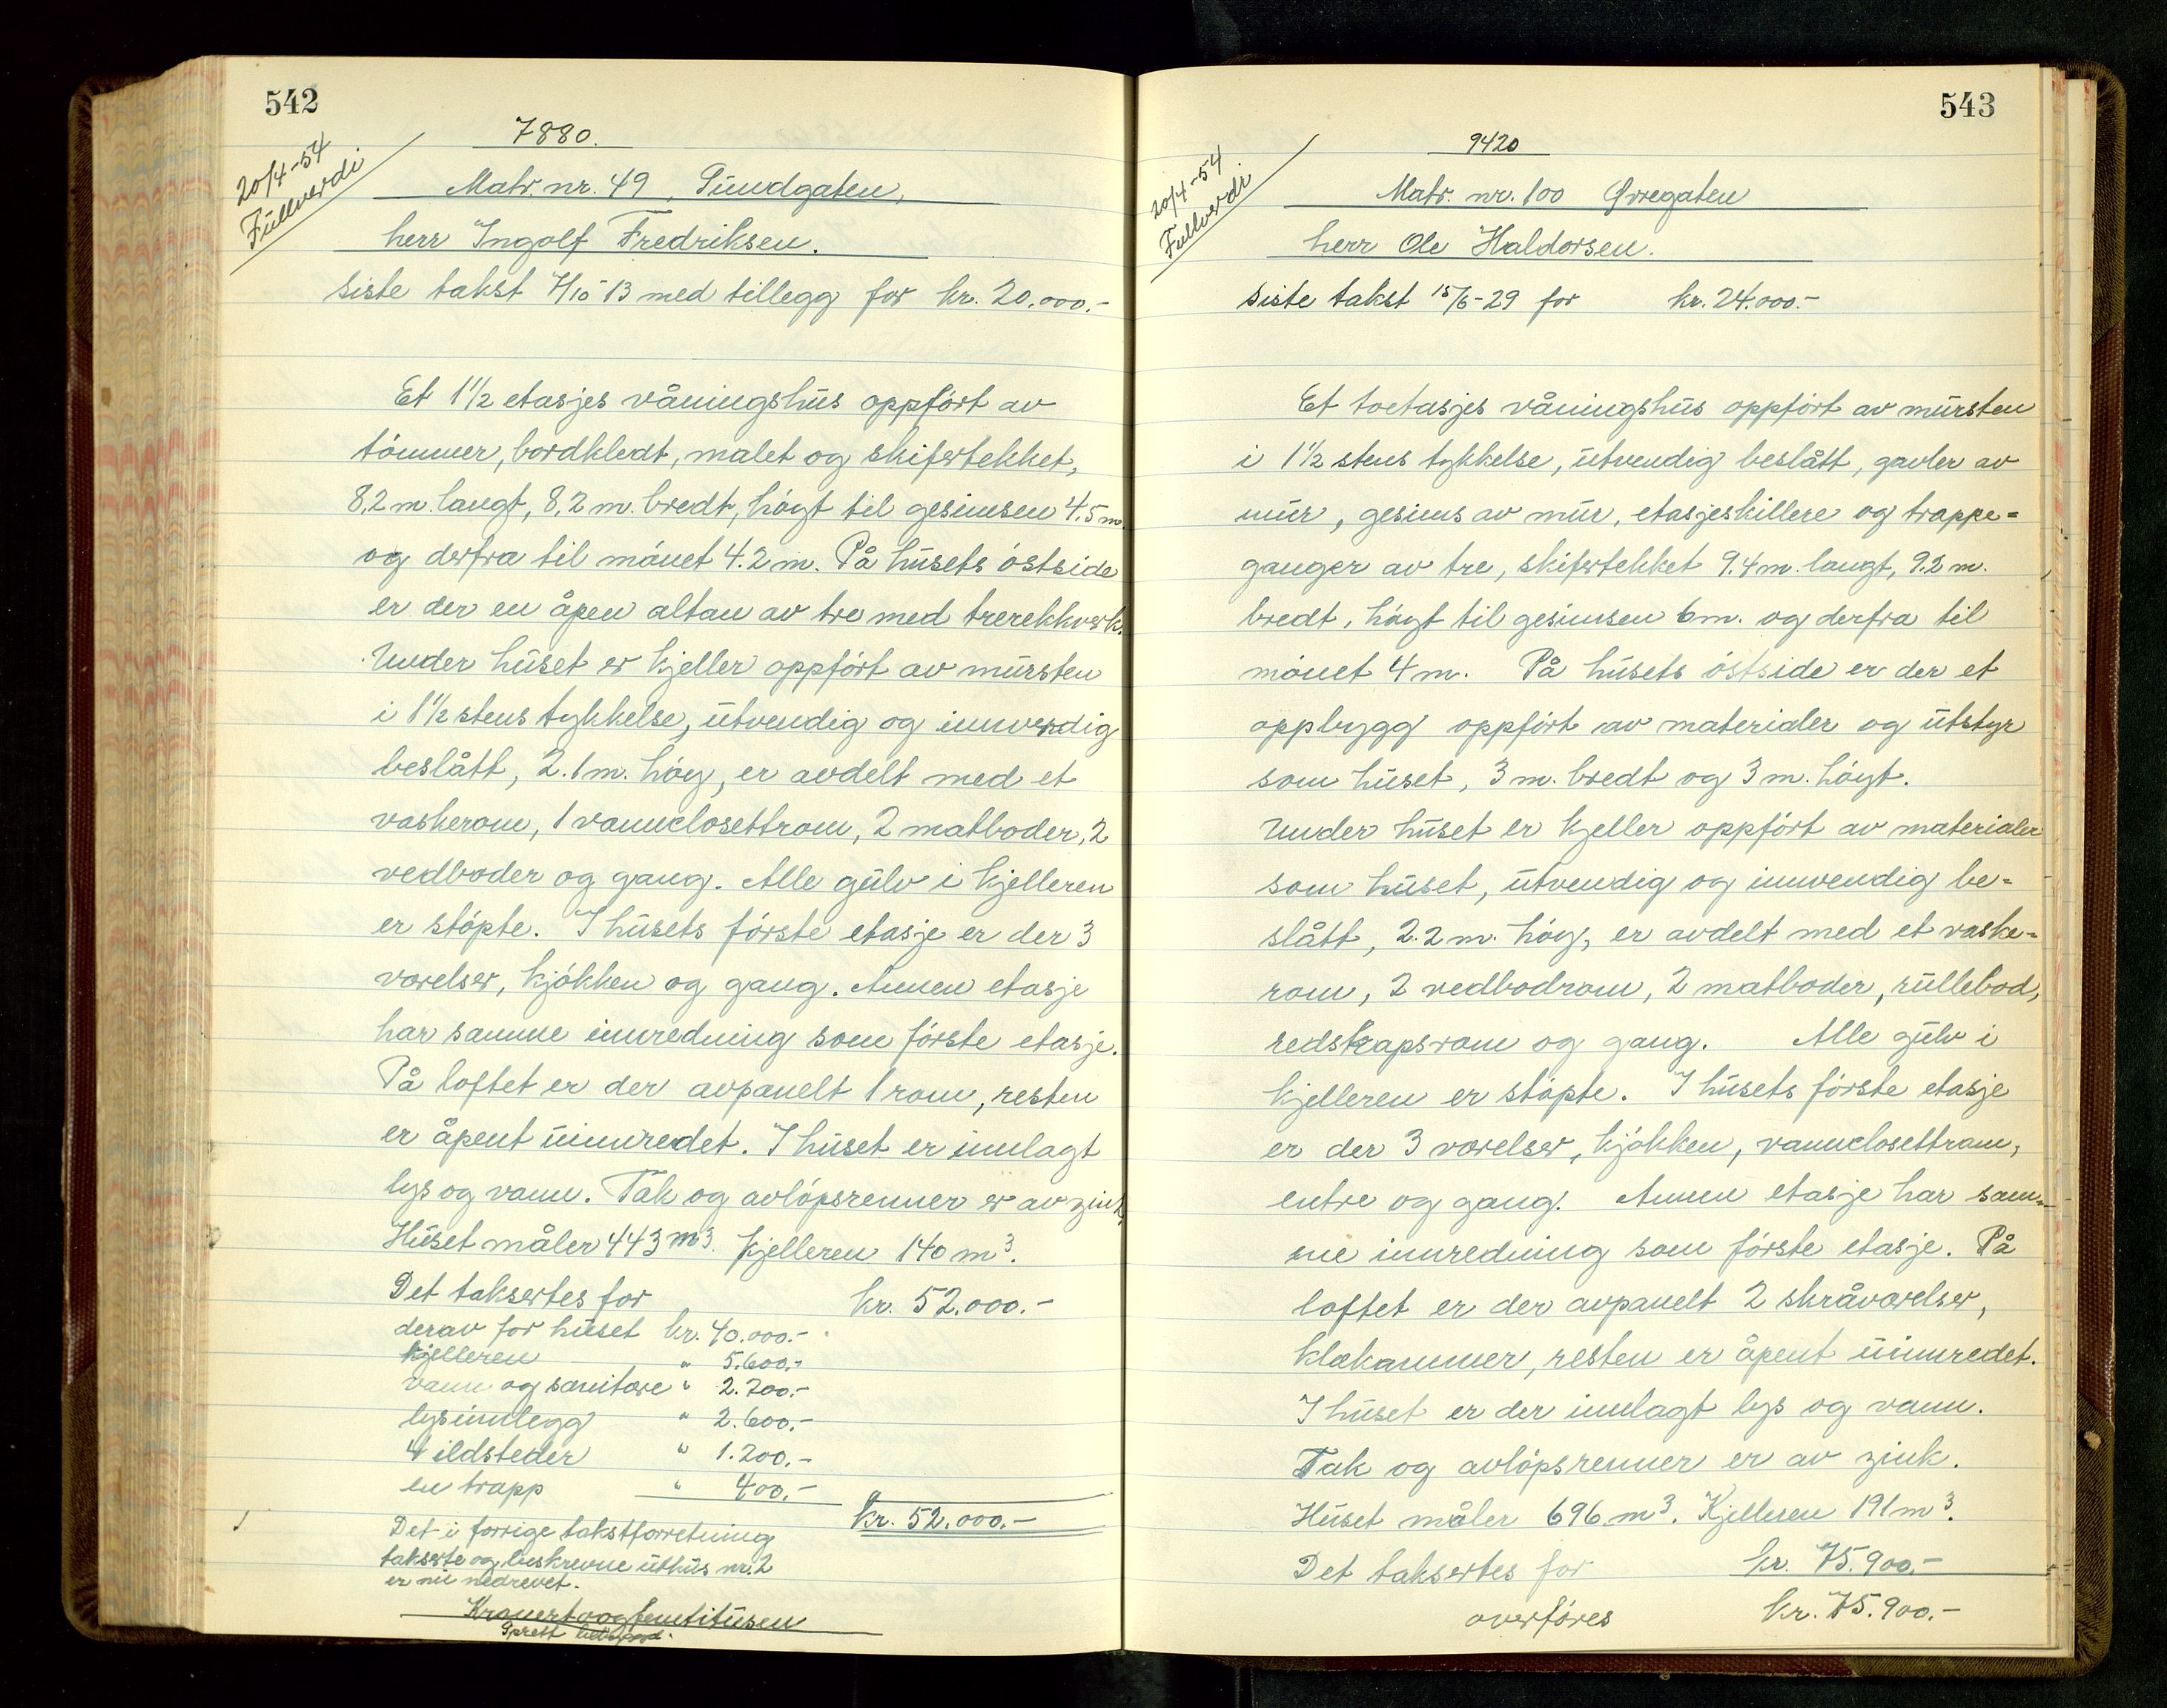 542
20/4-54
Fullverdi
7880.
Matr. nr. 49, Sundgaten,
herr Ingolf Fredriksen.
siste takst 7/10-13 med tillegg for kr. 20.000.-
Et 1 1/2 etasjes våningshus oppfört av
tömmer, bordkledt, malet og skifertekket,
8,2 m. langt, 8,2 m. bredt, högt til gesimsen 4,5 m.
og derfra til mönet 4.2 m. På husets östside
er der en åpen altan av tre med trerekkverk.
Under huset er kjeller oppfört av mursten
i 1 1/2 stens tykkelse, utvendig og innvendig
beslått, 2.1 m. höy, er avdelt med et
vaskerom, 1 vannclosettrom, 2 matboder, 2
vedboder og gang. Alle gulv i kjelleren
er stöpte. I husets förste etasje er der 3
værelser, kjökken og gang. Annen etasje
har samme innredning som förste etasje.
På loftet er der avpanelt 1 rom, resten
er åpent uinnredet. I huset er innlagt
lys og vann. Tak og avlöpsrenner er av zink,
Huset måler 443 m3. Kjelleren 140 m3.
Det taksertes for kr. 52.000.-
derav for huset kr. 40.000.-
kjelleren " 5.600.-
vann og sanitære " 2.200.-
lysinnlegg " 2.600.-
4 ildsteder " 1.200.-
en trapp " 400.-
kr. 52.000.-
Det i forrige takstforretning
takserte og beskrevne uthus nr. 2
er nu nedrevet.
Kroner to og femti tusen
543
20/4-54
Fullverdi
9420
Matr. nr. 100 Øvregaten
herr Ole Haldorsen.
siste takst 15/6-29 for kr. 24.000.-
Et toetasjes våningshus oppfört av mursten
i 1 1/2 stens tykkelse, utvendig beslått, gavler av
mur, gesims av mur, etasjeskillere og trappe=
ganger av tre, skifertekket 9.4 m. langt, 9.2 m.
bredt, högt til gesimsen 6 m. og derfra til
mönet 4 m. På husets östside er der et
oppbygg oppfört av materialer og utstyr
som huset, 3 m. bredt og 3 m. högt.
Under huset er kjeller oppfört av materialer
som huset, utvendig og innvendig be=
slått, 2.2 m. höy, er avdelt med et vaske=
rom, 2 vedbodrom, 2 matboder, rullebod,
redskapsrom og gang. Alle gulv i
kjelleren er stöpte. I husets förste etasje
er der 3 værelser, kjökken, vannclosettrom,
entre og gang. Annen etasje har sam=
me innredning som förste etasje. På
loftet er der avpanelt 2 skråværelser,
klækammer, resten er åpent uinnredet.
I huset er der innlagt lys og vann.
Tak og avlöpsrenner er av zink.
Huset måler 696 m3. Kjelleren 191 m3.
Det taksertes for kr. 75.900.-
overföres kr. 75.900.-